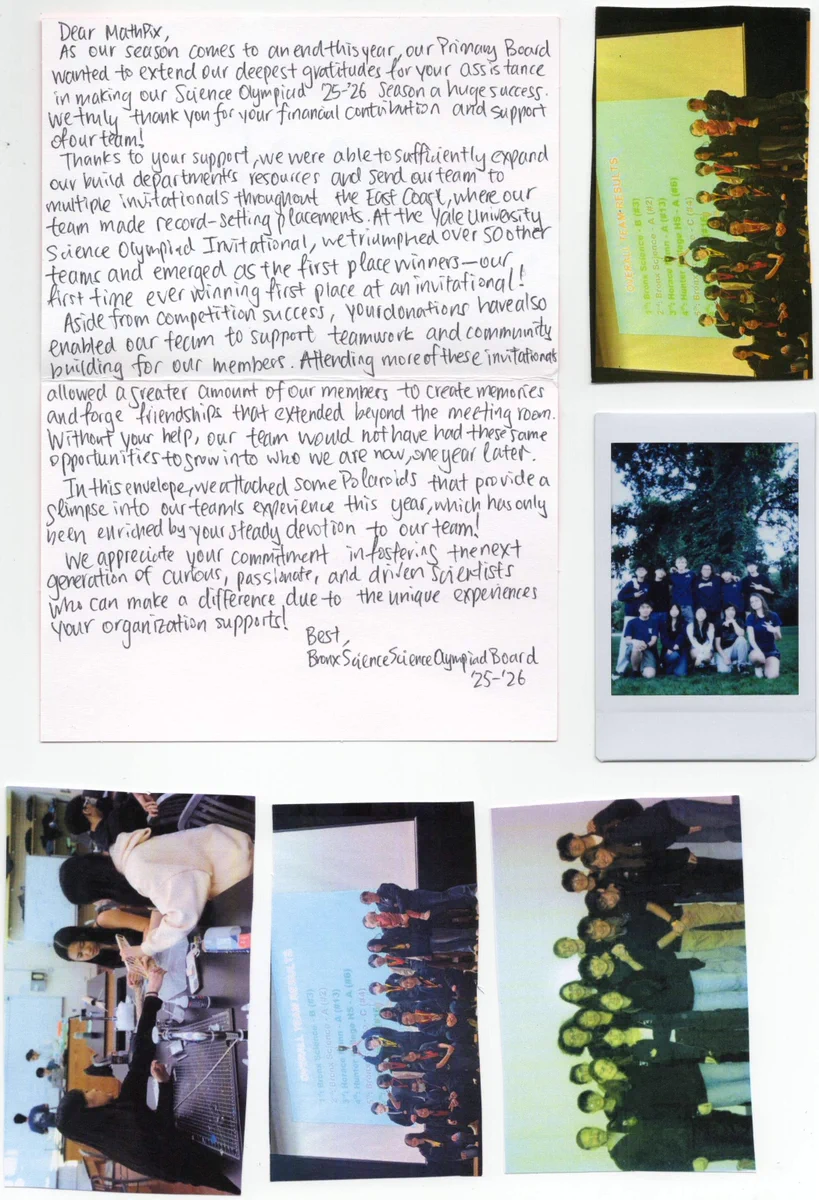 Dear MathPix,
As our season comes to an end this year, our Primary Board
wanted to extend our deepest gratitudes for your assistance
in making our Science Olympiad '25-'26 season a huge success.
We truly thank you for your financial contribution and support
of our team!
Thanks to your support, we were able to sufficiently expand
our build department's resources and send our team to
multiple invitationals throughout the East Coast, where our
team made record-setting placements. At the Yale University
Science Olympiad Invitational, we triumphed over 50 other
teams and emerged as the first place winners—our
first time ever winning first place at an invitational!
Aside from competition success, your donations have also
enabled our team to support teamwork and community
building for our members. Attending more of these invitationals
allowed a greater amount of our members to create memories
and forge friendships that extended beyond the meeting room.
Without your help, our team would not have had these same
opportunities to grow into who we are now, one year later.
In this envelope, we attached some Polaroids that provide a
glimpse into our team's experience this year, which has only
been enriched by your steady devotion to our team!
We appreciate your commitment in fostering the next
generation of curious, passionate, and driven scientists
who can make a difference due to the unique experiences
your organization supports!
Best,
Bronx Science Science Olympiad Board
'25-'26
OVERALL TEAM RESULTS
1st Bronx Science - B (#3)
2nd Bronx Science - A (#2)
3rd Horace Mann - A (#13)
4th Hunter College HS - A (#6)
- C (#4)
OVERALL TEAM RESULTS
1st Bronx Science - B (#3)
2nd Bronx Science - A (#2)
3rd Horace Mann - A (#13)
4th Hunter College HS - A (#6)
- C (#4)